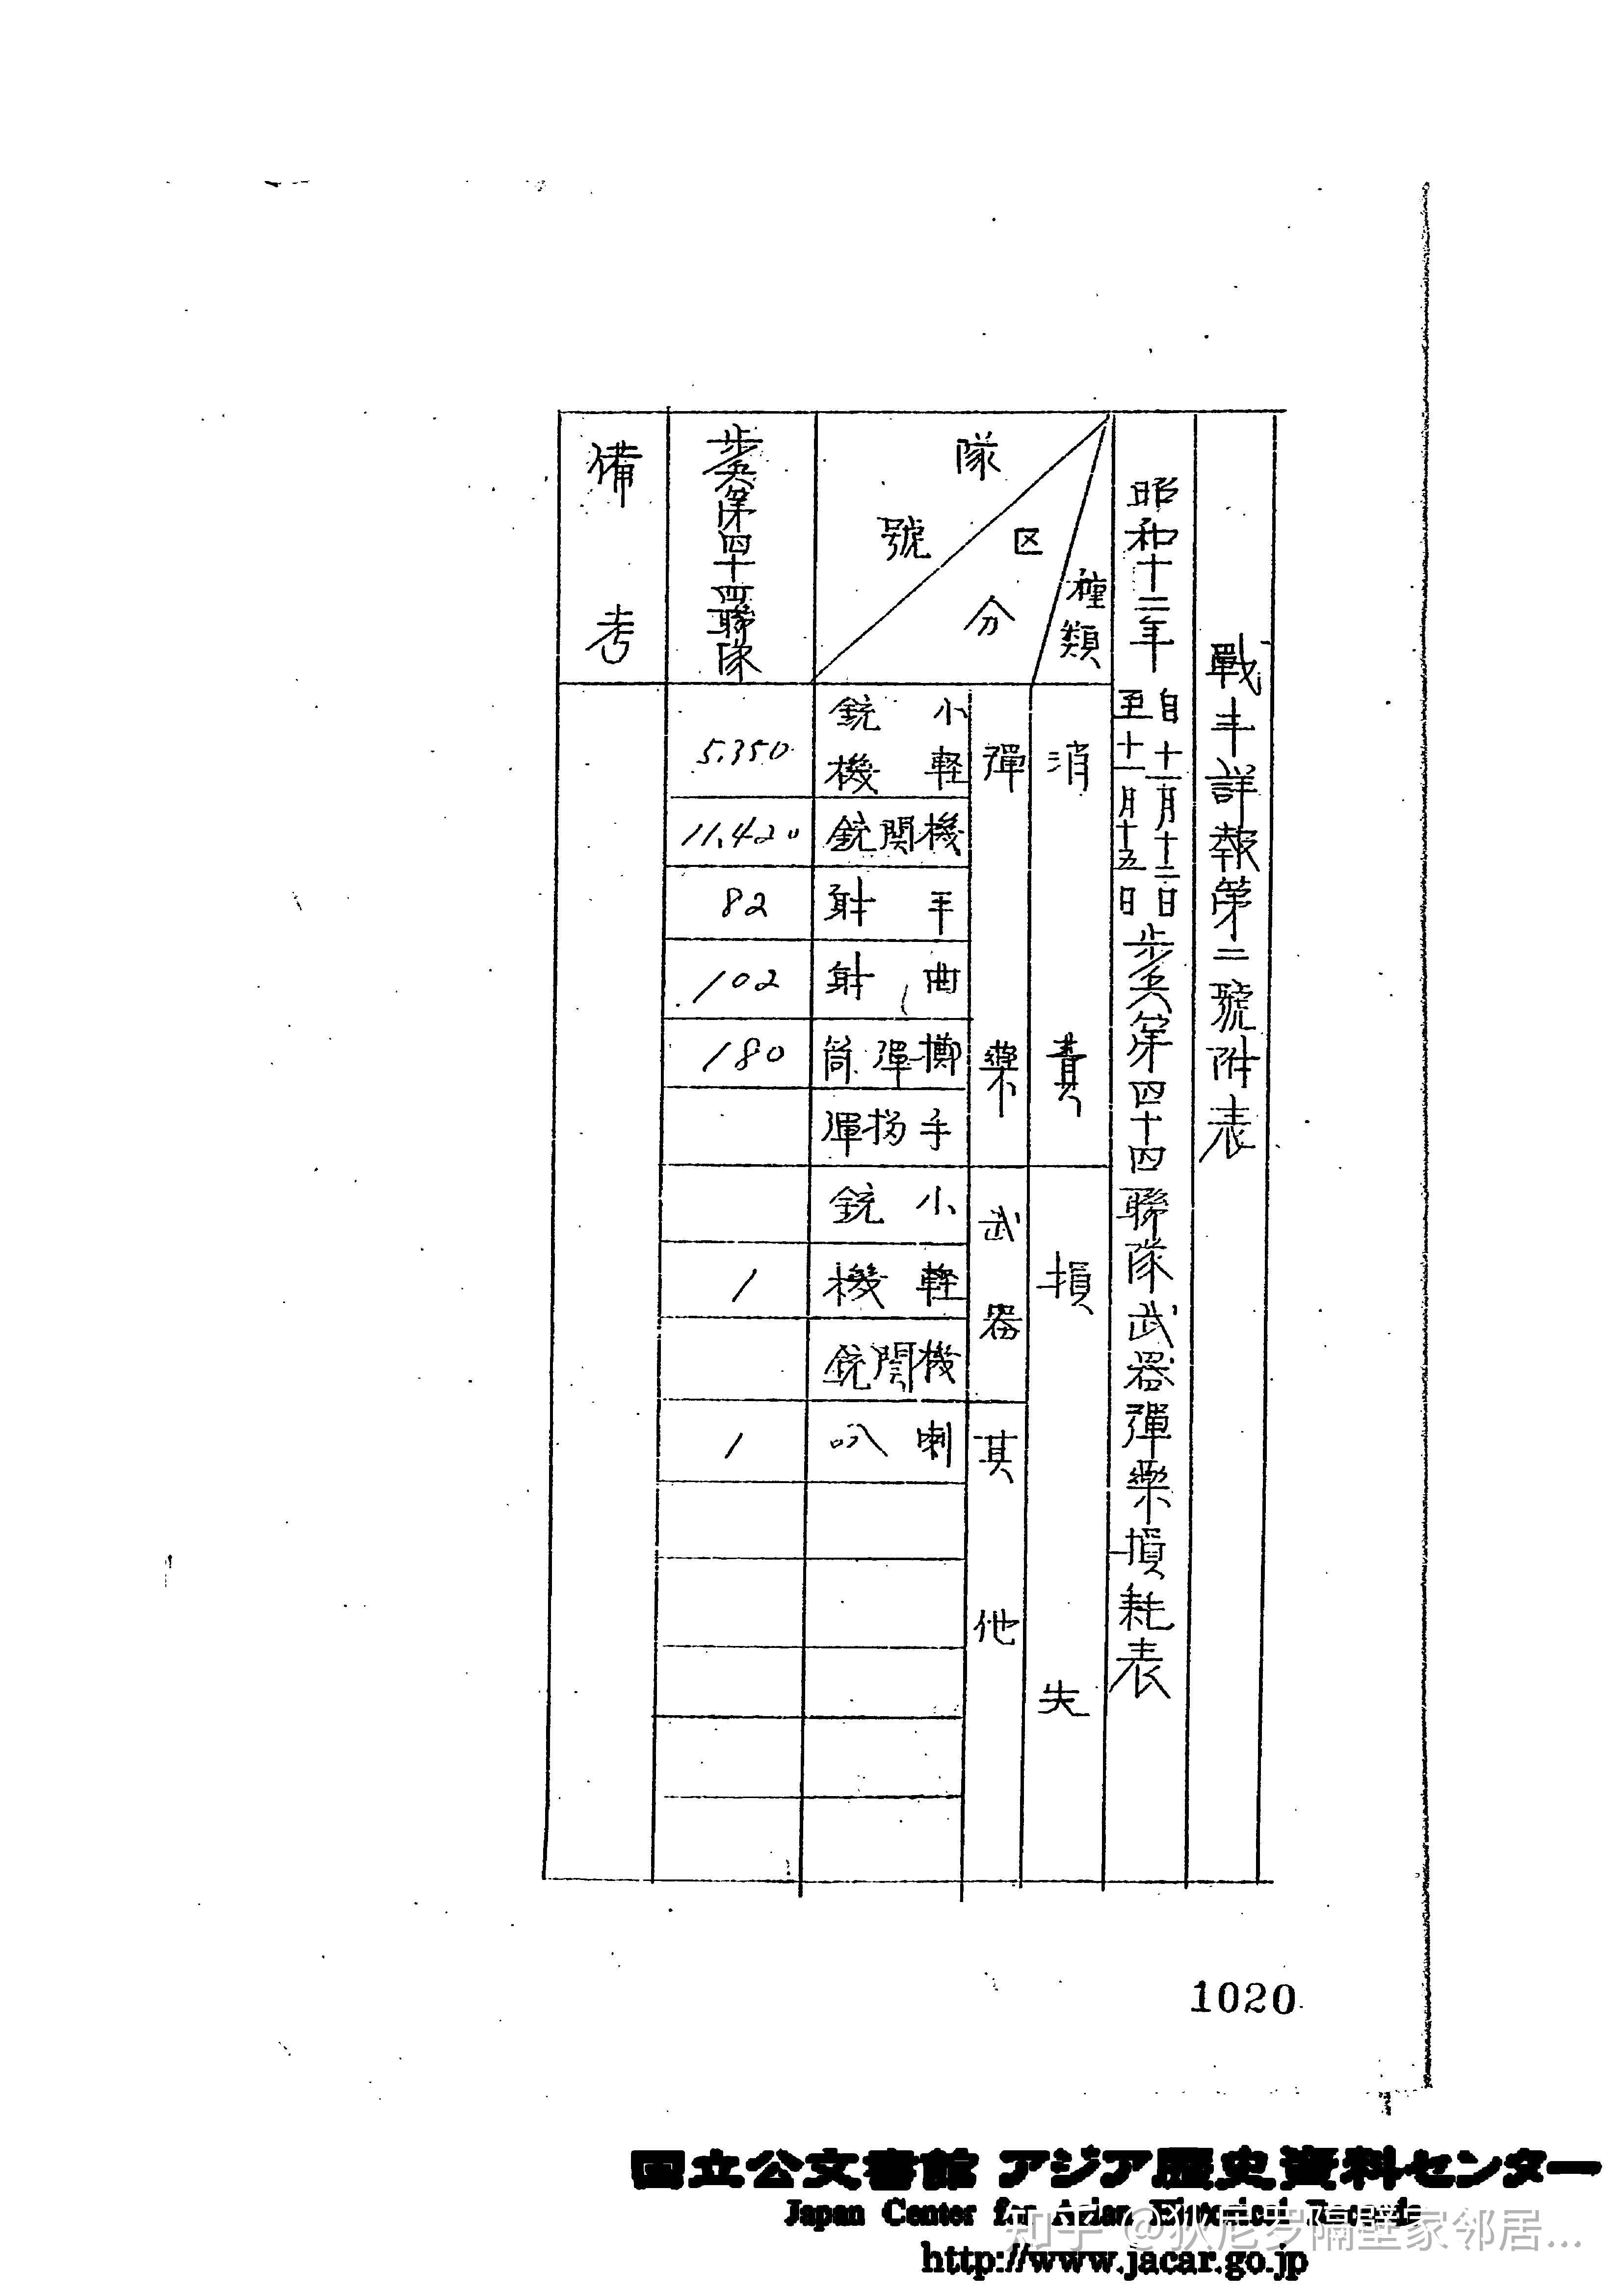 戰斗詳報第二號附表
昭和十二年 自十一月十二日 至十一月十五日 步兵第四十四聯隊武器彈藥損耗表
種類
区分
隊號
消費
損失
彈藥
武器
其他
小銃 軽機
機関銃
平射
曲射
擲弾筒
手榴弾
小銃
軽機
機関銃
喇叭
步兵第四十四聯隊
5.350
11.420
82
102
180
1
1
備考
1020
国立公文書館 アジア歴史資料センター
Japan Center for Asian Historical Records
知乎 @狄尼罗隔壁家邻居...
http://www.jacar.go.jp